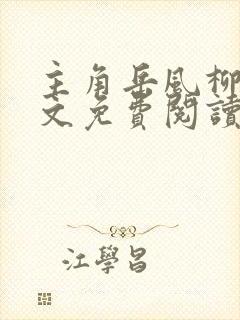 主角岳風柳
文免費閱讀
江學昌